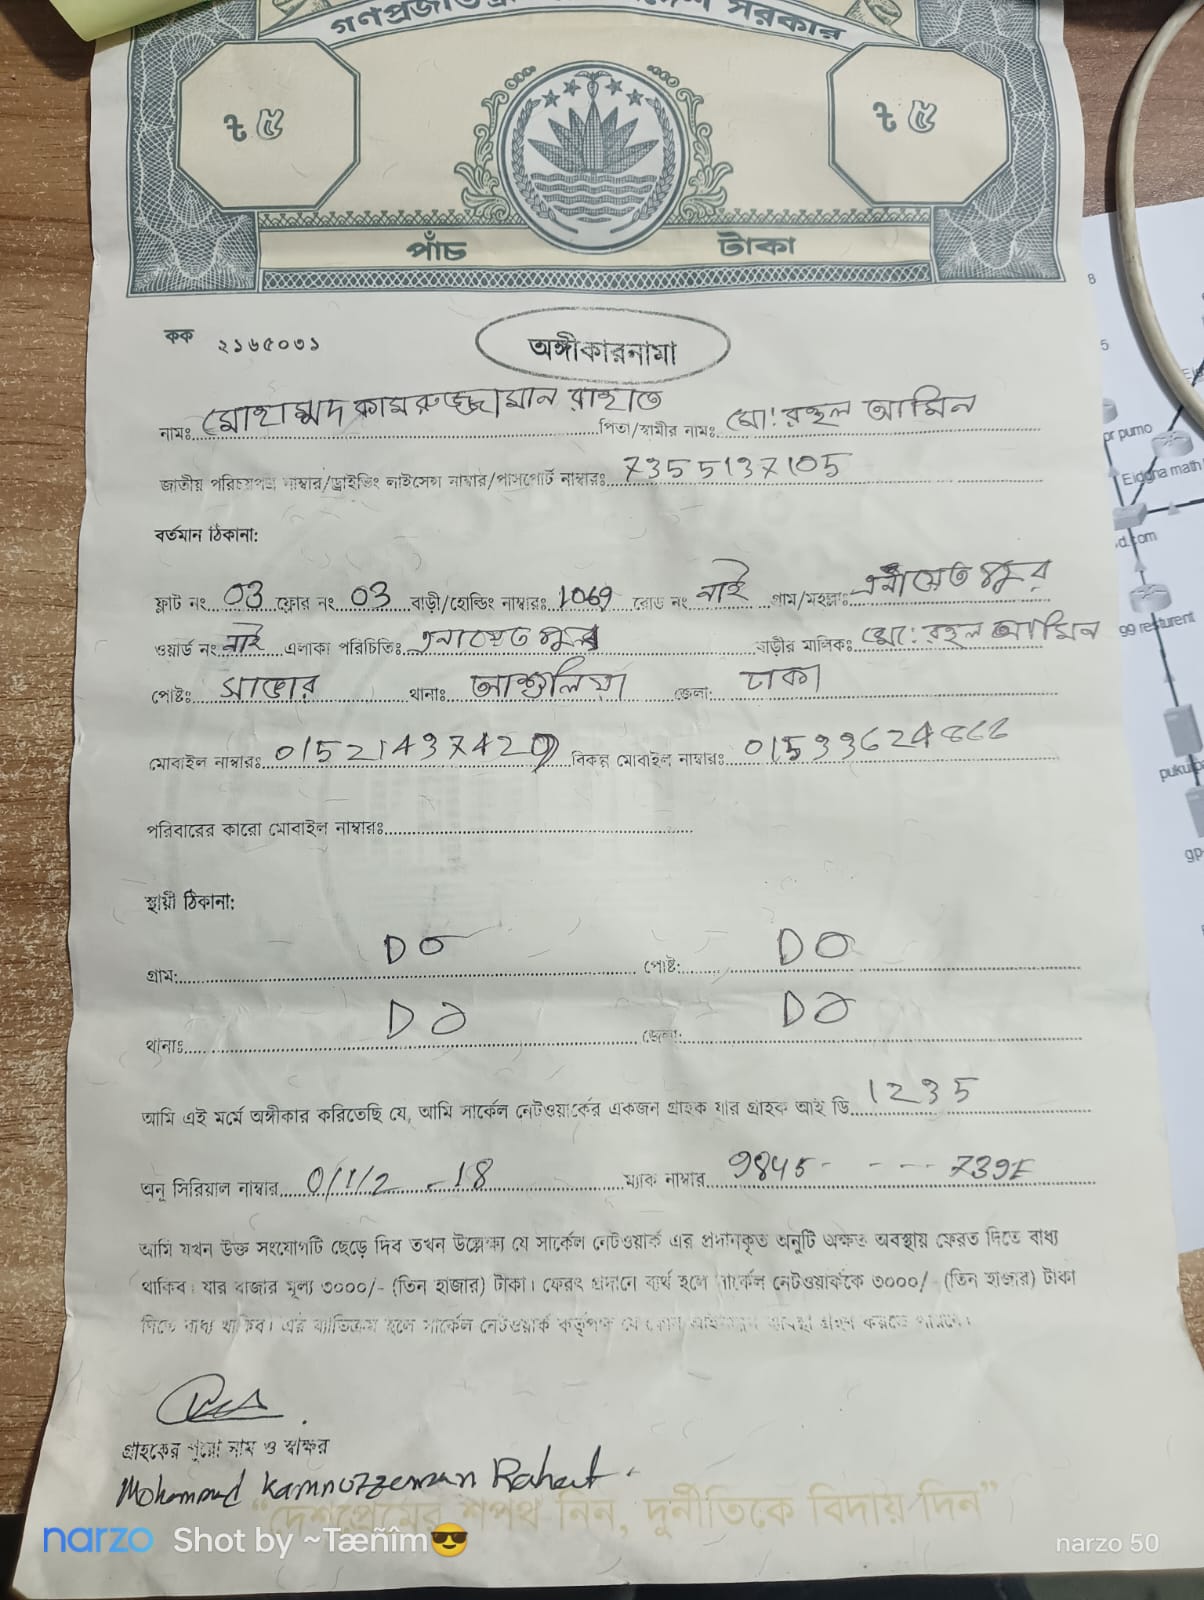 গণপ্রজাতন্ত্রী সরকার
৳ ৫
৳ ৫
পাঁচ টাকা
কক ২১৬৫০৩১
অঙ্গীকারনামা
নামঃ মোহাম্মদ কামরুজ্জামান রাহাত পিতা/স্বামীর নামঃ মো: রহুল আমিন
জাতীয় পরিচয়পত্র নাম্বার/ড্রাইভিং লাইসেন্স নাম্বার/পাসপোর্ট নাম্বারঃ 7355137105
বর্তমান ঠিকানা:
ফ্লাট নং 03 ফ্লোর নং 03 বাড়ী/হোল্ডিং নাম্বারঃ 1069 রোড নং নাই গ্রাম/মহল্লাঃ এনায়েতপুর
ওয়ার্ড নং নাই এলাকা পরিচিতিঃ এনায়েতপুর বাড়ীর মালিকঃ মো: রহুল আমিন
পোষ্টঃ সাভার থানাঃ আশুলিয়া জেলা: ঢাকা
মোবাইল নাম্বারঃ বিকল্প মোবাইল নাম্বারঃ
পরিবারের কারো মোবাইল নাম্বারঃ
স্থায়ী ঠিকানা:
গ্রাম: DO পোষ্ট: DO
থানাঃ DO জেলা: DO
আমি এই মর্মে অঙ্গীকার করিতেছি যে, আমি সার্কেল নেটওয়ার্কের একজন গ্রাহক যার গ্রাহক আই ডি 1235
অনু সিরিয়াল নাম্বার 0/1/2 - 18 ম্যাক নাম্বার 9845- - - - 739E
আমি যখন উক্ত সংযোগটি ছেড়ে দিব তখন উল্লেক্ষ্য যে সার্কেল নেটওয়ার্ক এর প্রদানকৃত অনুটি অক্ষত অবস্থায় ফেরত দিতে বাধ্য
থাকিব। যার বাজার মূল্য ৩০০০/- (তিন হাজার) টাকা। ফেরৎ প্রদানে ব্যর্থ হলে সার্কেল নেটওয়ার্ককে ৩০০০/- (তিন হাজার) টাকা
দিতে বাধ্য থাকিব। এর ব্যতিক্রম হলে সার্কেল নেটওয়ার্ক কর্তৃপক্ষ যে কোন ব্যবস্থা গ্রহন করতে পারবে।
গ্রাহকের পুরো নাম ও স্বাক্ষর
Mohammad Kamruzzaman Rahat
“দেশপ্রেমের শপথ নিন, দুর্নীতিকে বিদায় দিন”
narzo Shot by ~Tæñîm😎 narzo 50
8
5
or pumo
Eidgha math
d.com
99 resturent